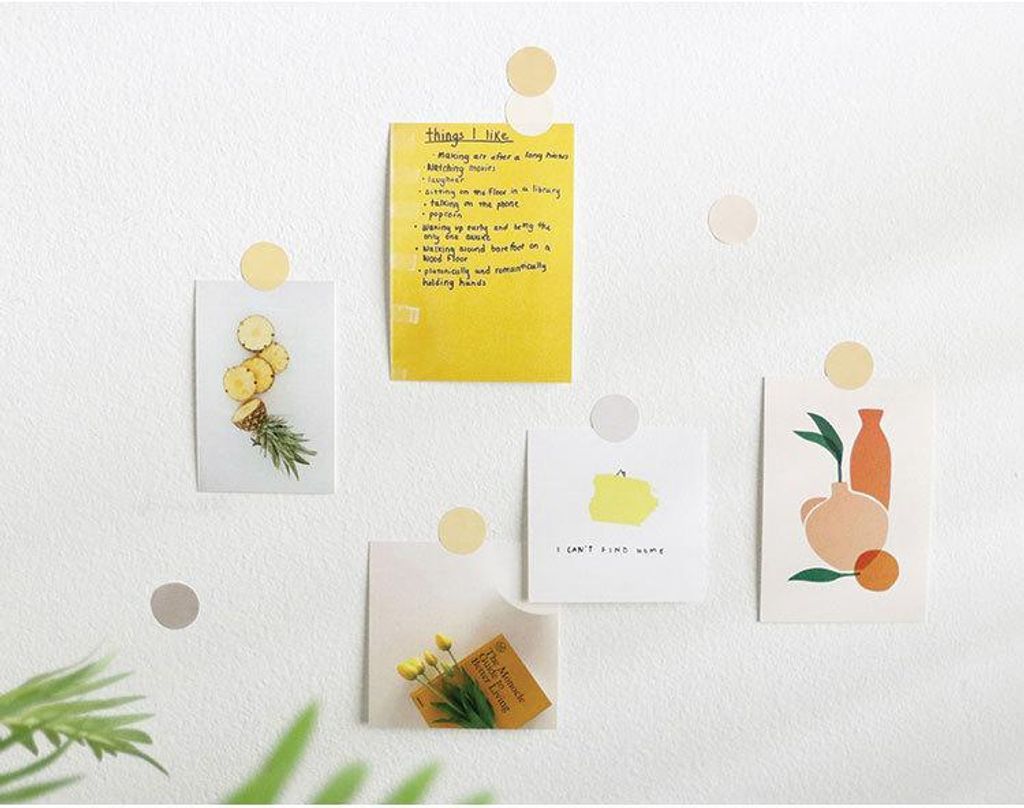 things I like
· Making art after a long hiatus
· Watching movies
· laughter
· sitting on the floor in a library
· talking on the phone
· popcorn
· Waking up early and being the
only one awake
· Walking around barefoot on a
wood floor
· platonically and romantically
holding hands
I CAN'T FIND HOME
The Monocle
Guide to
Better Living